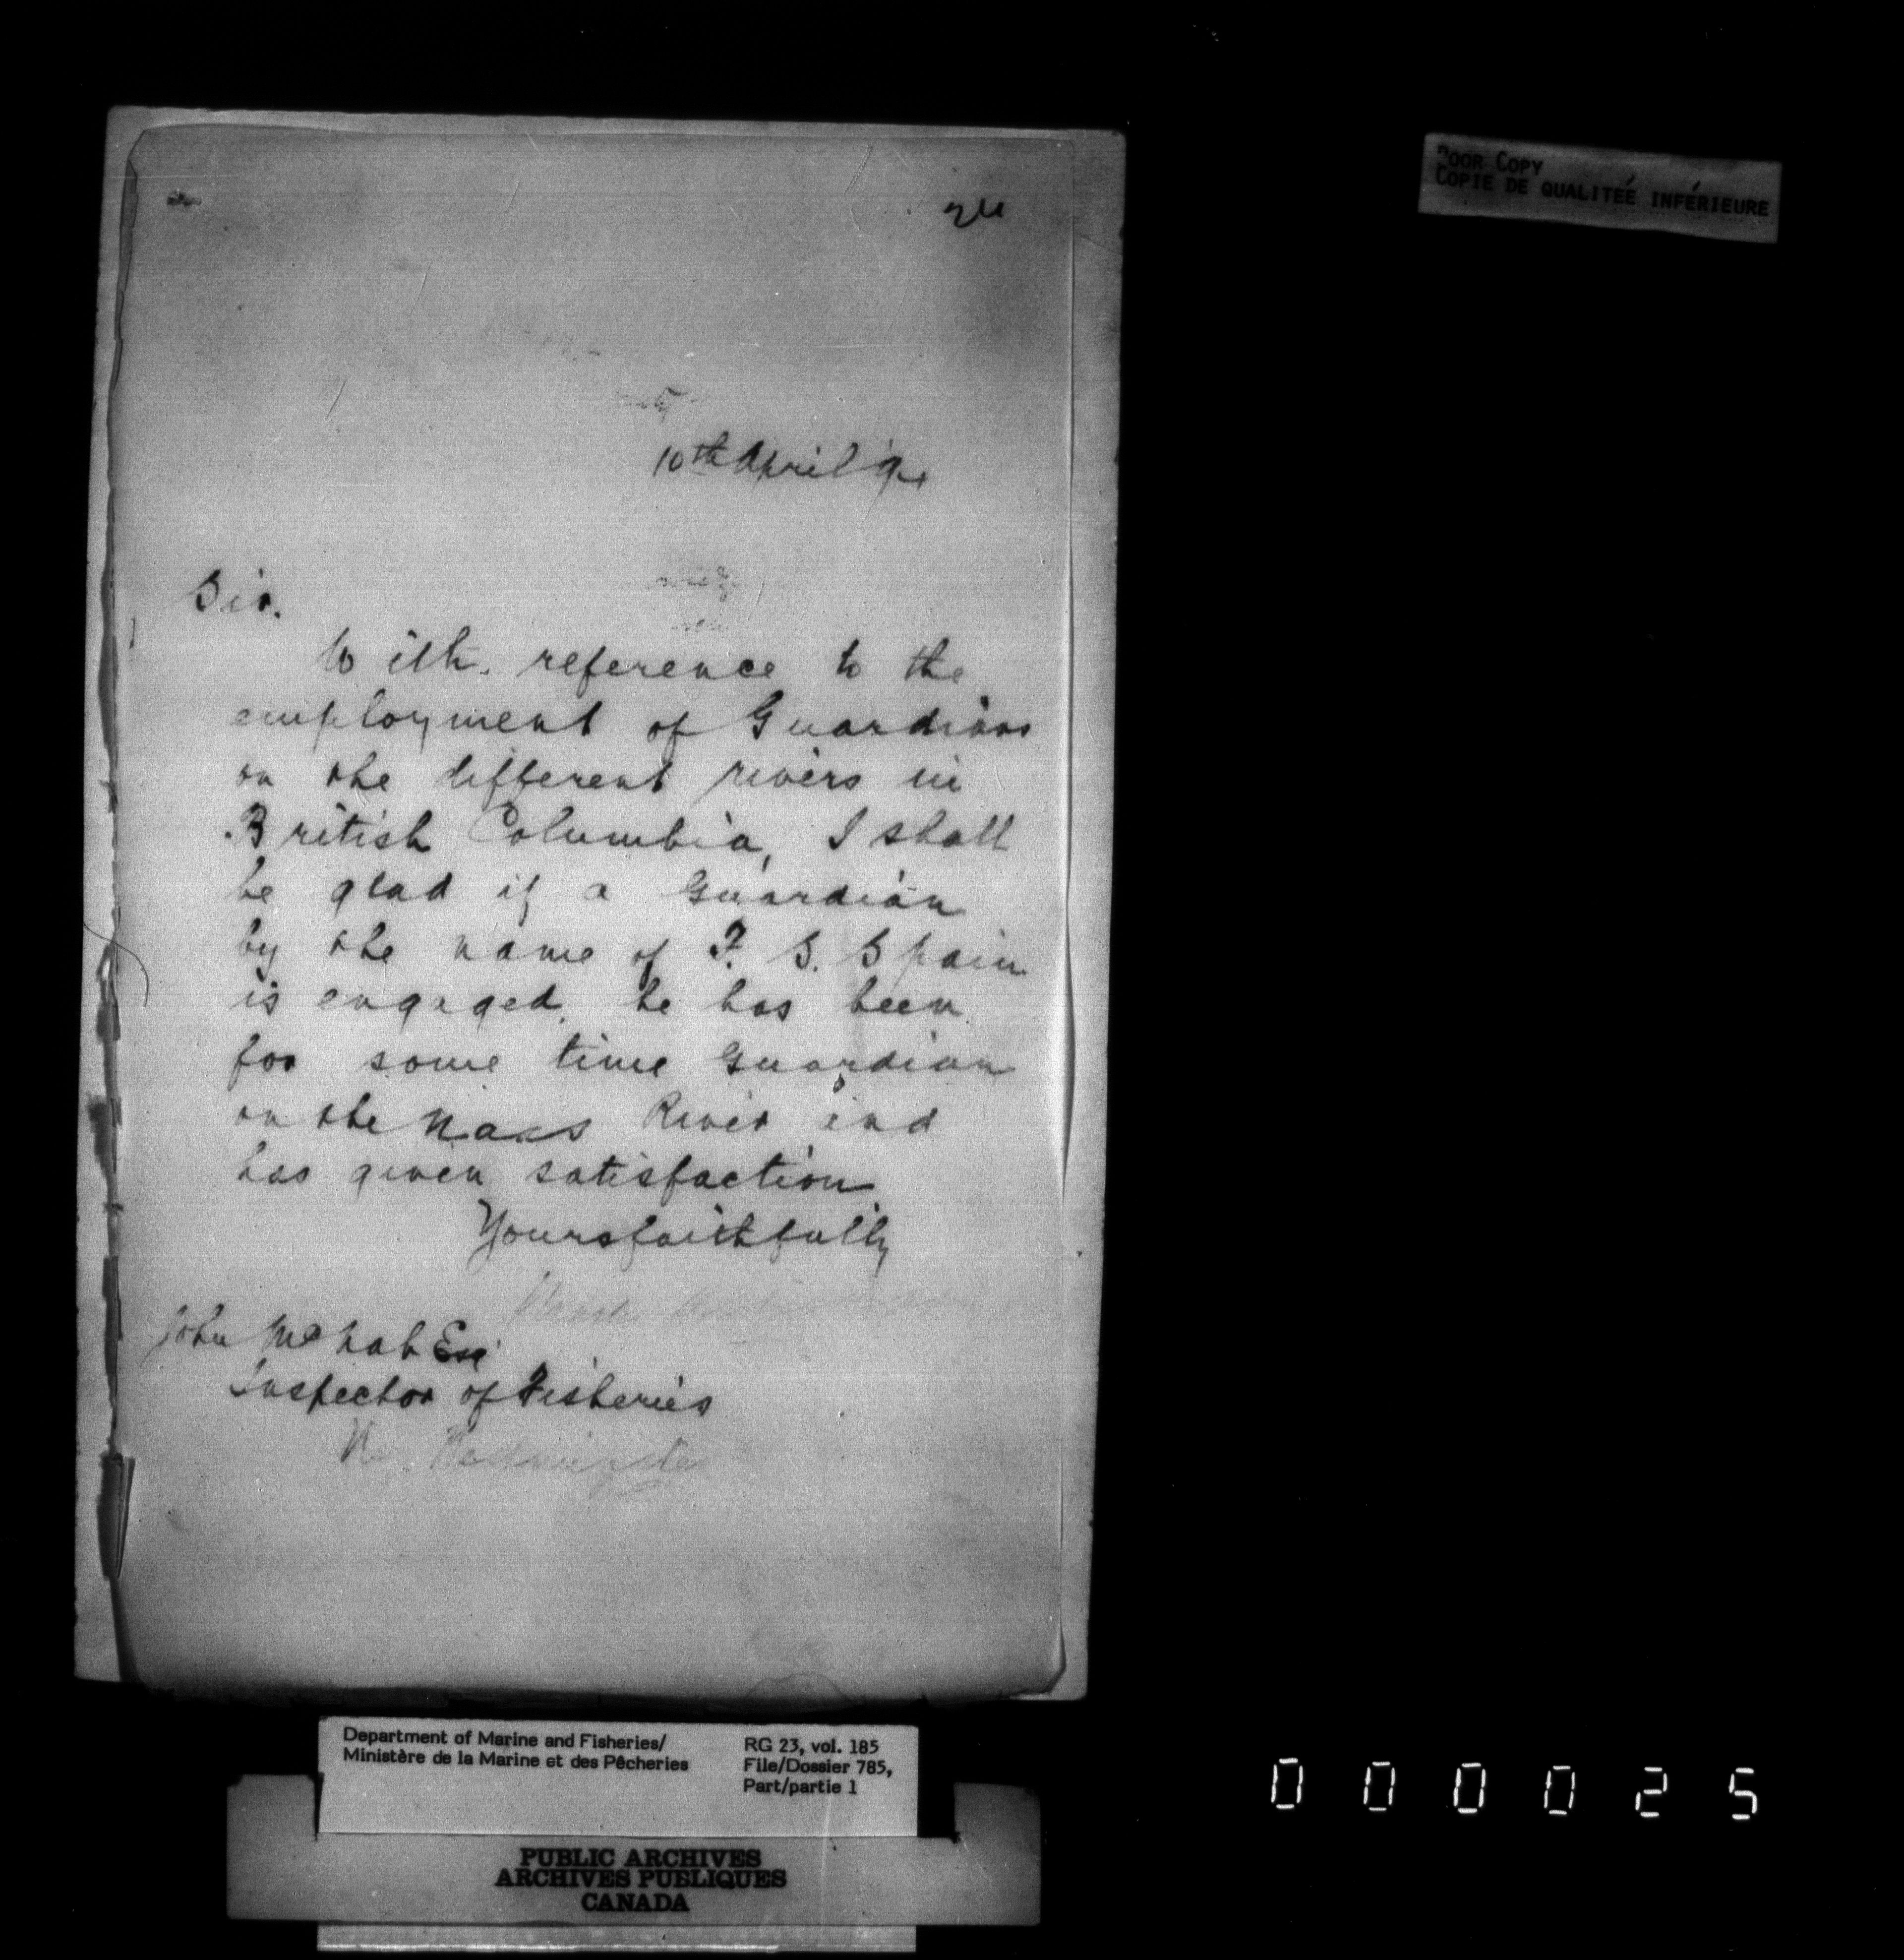 24
POOR COPY
COPIE DE QUALITEÉ INFÉRIEURE
10th April
Sir.
With reference to the
employment of Guardians
on the different rivers in
British Columbia, I shall
be glad if a Guardian
by the name of F. S. Spain
is engaged, he has been
for some time Guardian
on the Naas River and
has given satisfaction
Yours faithfully
John McNab Esq
Inspector of Fisheries
N. Westminster
Department of Marine and Fisheries/
Ministère de la Marine et des Pêcheries
RG 23, vol. 185
File/Dossier 785,
Part/partie 1
PUBLIC ARCHIVES
ARCHIVES PUBLIQUES
CANADA
000025